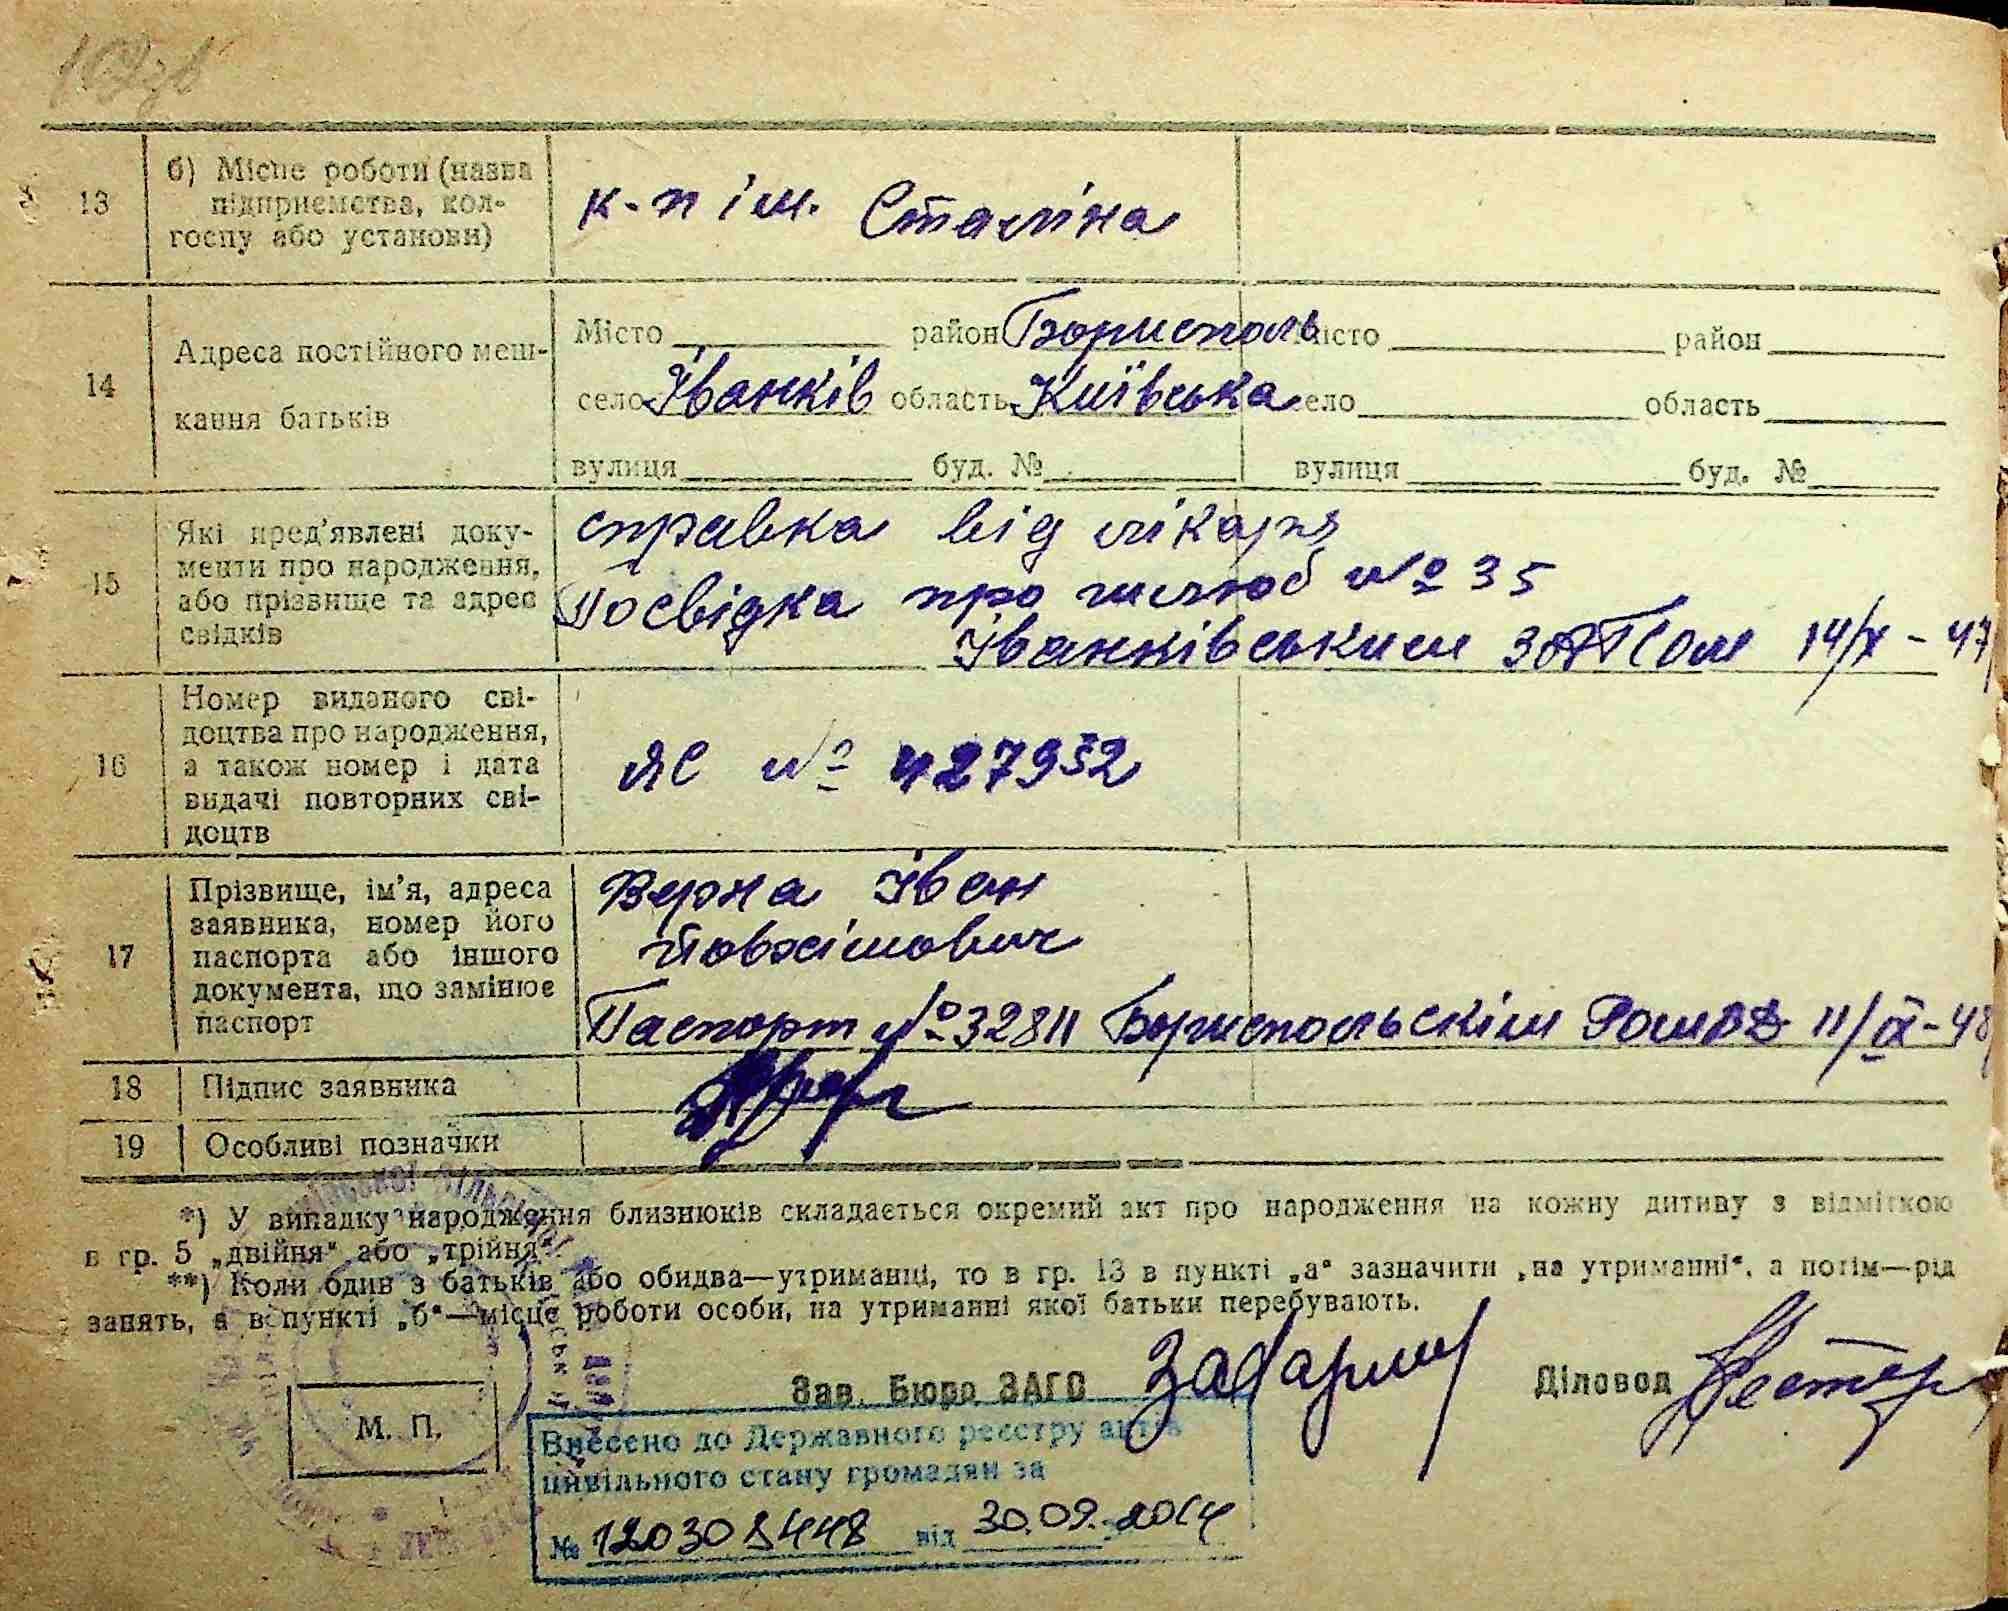 13
б) Місце роботи (назва
підприємства, кол-
госпу або установи)
к-п ім. Сталіна
14
Адреса постійного меш-
кання батьків
Місто район Бориспіль Місто район
село Іванків область Київська село область
вулиця буд. № вулиця буд. №
15
Які пред'явлені доку-
менти про народження,
або прізвище та адрес
свідків
справка від лікаря
Посвідка про шлюб № 35
Іванківським ЗАГСом 14/X - 47
16
Номер виданого сві-
доцтва про народження,
а також номер і дата
видачі повторних сві-
доцтв
ЯС № 427932
17
Прізвище, ім'я, адреса
заявника, номер його
паспорта або іншого
документа, що замінює
паспорт
Верна Іван
Йовхімович
Паспорт № 32811 Бориспольскім 11/IX-48
18 Підпис заявника
19 Особливі позначки
*) У випадку народження близнюків складається окремий акт про народження на кожну дитину з відміткою
в гр. 5 „двійня" або „трійня".
**) Коли один з батьків або обидва—утриманці, то в гр. 13 в пункті „а" зазначити „на утриманні", а потім—рід
занять, а в пункті „б"—місце роботи особи, на утриманні якої батьки перебувають.
Зав. Бюро ЗАГС
Діловод
М. П.
Внесено до Державного реєстру актів
цивільного стану громадян за
№ 12030 448 від 30.09.2014